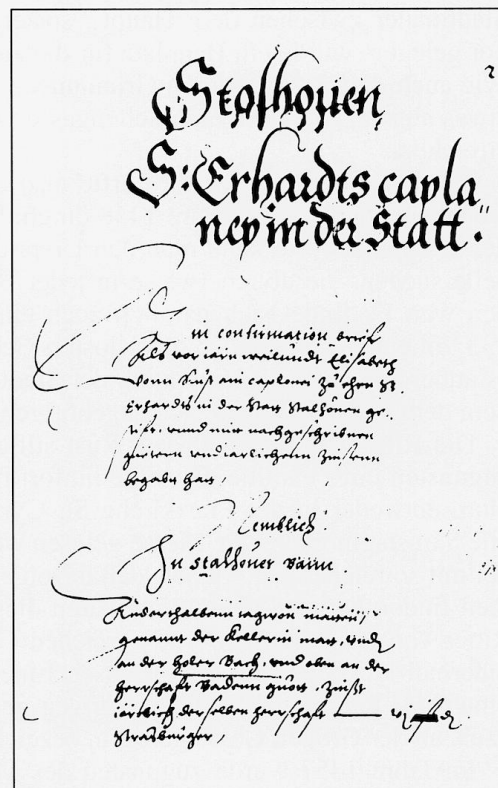 Stalhouen,
S: Erhardts capla„
ney in der Statt.
confirmation brieff
Als vor iarn weilundt Elisabeth
vonn ain caplonei zu ehrn St.
Erhardts in der Statt Stalhouen ge„
stifft, vnnd mit nachgeschribnen
güttern vnd iarlichenn Zinsenn
begabt hatt,
Nemblich
In Stalhouer Bann.
Anderthalbenn tagwon matten,
genannt der Kellerin matt,
an der holer Bach, vnd oben an der
herrschafft Badenn guott, Zinßt
iärlich der selben herrschafft
Straßburger,